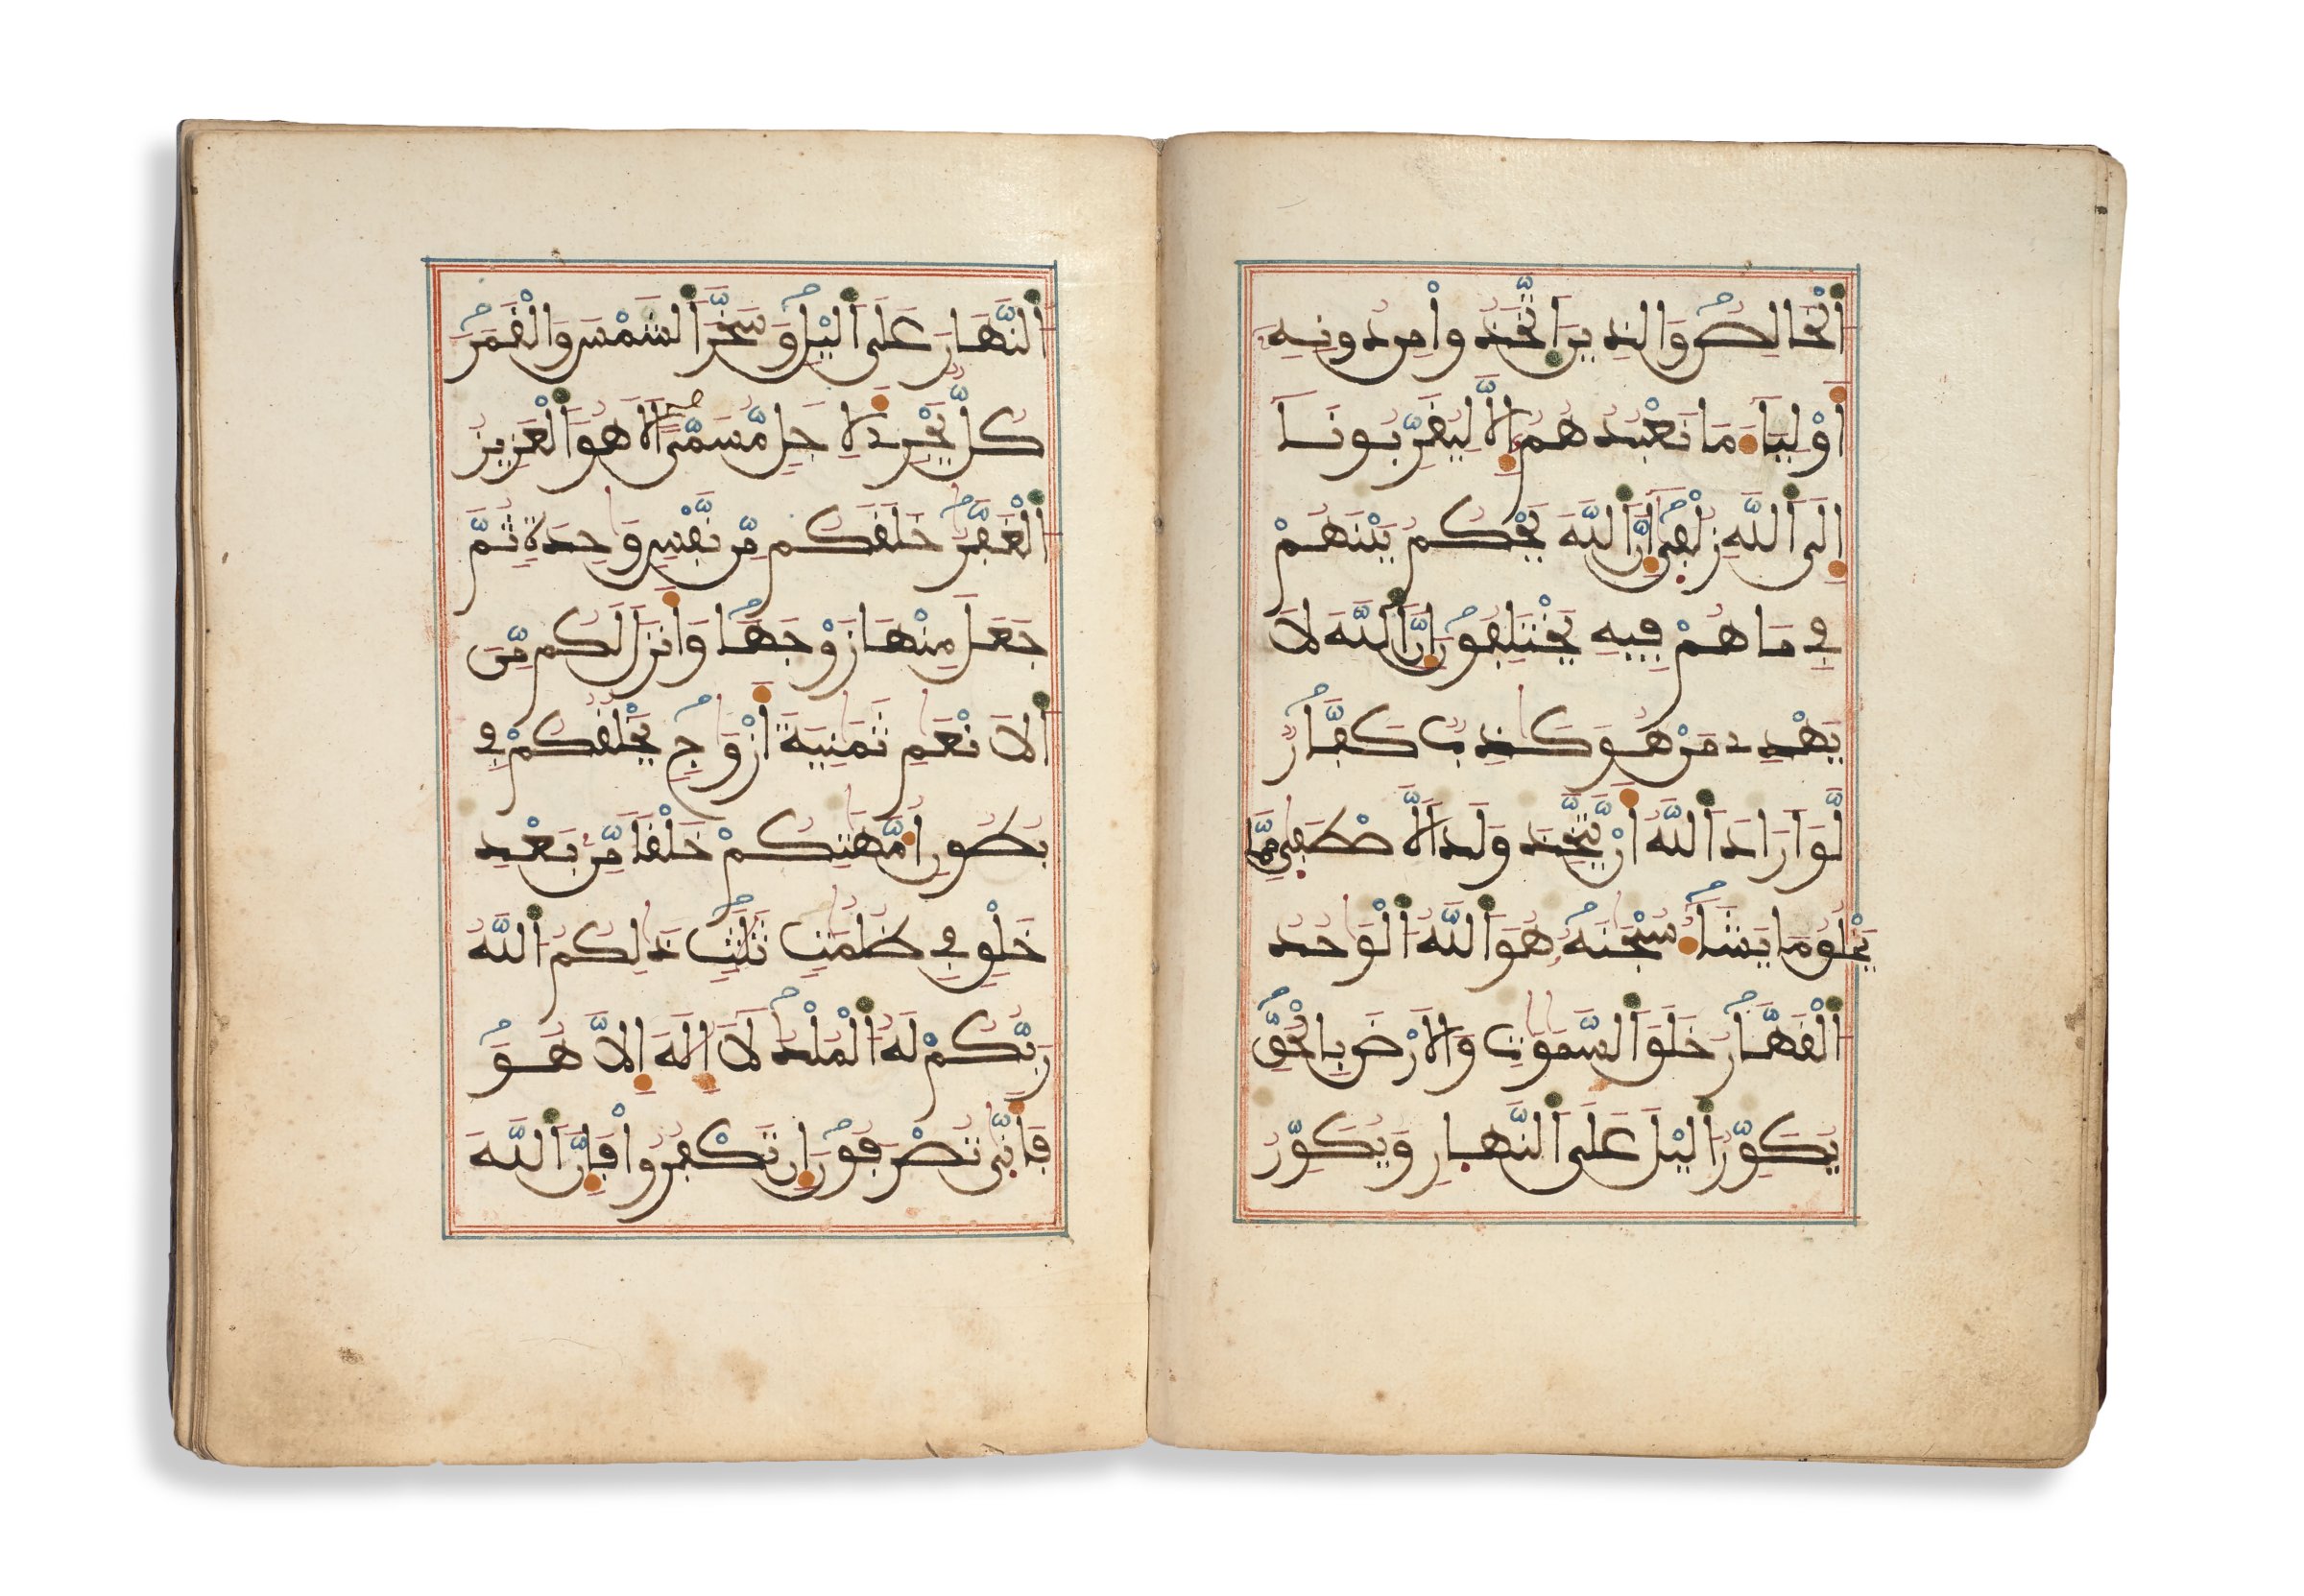 اَ۬لْخَالِصُ وَالذِينَ اَ۪تَّخَذُواْ مِن دُونِهِۦ
أَوْلِيَآءَ مَا نَعْبُدُهُمْ إِلَّا لِيُقَرِّبُونَآ
إِلَى اَ۬للَّهِ زُلْف۪ىٰٓ إِنَّ اَ۬للَّهَ يَحْكُمُ بَيْنَهُمْ
فِے مَا هُمْ فِيهِ يَخْتَلِفُونَ إِنَّ اَ۬للَّهَ لَا
يَهْدِے مَنْ هُوَ كَٰذِبٌ كَفَّارٌ
لَّوَ اَرَادَ اَ۬للَّهُ أَنْ يَّتَّخِذَ وَلَداٗ لَّاصْطَف۪ىٰ مِمَّا
يَخْلُقُ مَا يَشَآءُ سُبْحَٰنَهُۥ هُوَ اَ۬للَّهُ اَ۬لْوَٰحِدُ
اَ۬لْقَهَّارُ خَلَقَ اَ۬لسَّمَٰوَٰتِ وَالَارْضَ بِالْحَقِّ
يُكَوِّرُ اُ۬ليْلَ عَلَى اَ۬لنَّهَارِ وَيُكَوِّرُ
اُ۬لنَّهَارَ عَلَى اَ۬ليْلِ وَسَخَّرَ اَ۬لشَّمْسَ وَالْقَمَرَ
كُلٌّ يَجْرِے لِأَجَلٍ مُّسَمّىً اَلَا هُوَ اَ۬لْعَزِيزُ
اُ۬لْغَفَّٰرُ خَلَقَكُم مِّن نَّفْسٍ وَٰحِدَةٍ ثُمَّ
جَعَلَ مِنْهَا زَوْجَهَا وَأَنزَلَ لَكُم مِّنَ
اَ۬لَانْعَٰمِ ثَمَٰنِيَةَ أَزْوَٰجٍ يَخْلُقُكُمْ فِے
بُطُونِ أُمَّهَٰتِكُمْ خَلْقاً مِّنۢ بَعْدِ
خَلْقٍ فِے ظُلُمَٰتٍ ثَلَٰثٍ ذَٰلِكُمُ اُ۬للَّهُ
رَبُّكُمْ لَهُ اُ۬لْمُلْكُ لَآ إِلَٰهَ إِلَّا هُوَ
فَأَنّ۪ىٰ تُصْرَفُونَ إِن تَكْفُرُواْ فَإِنَّ اَ۬للَّهَ